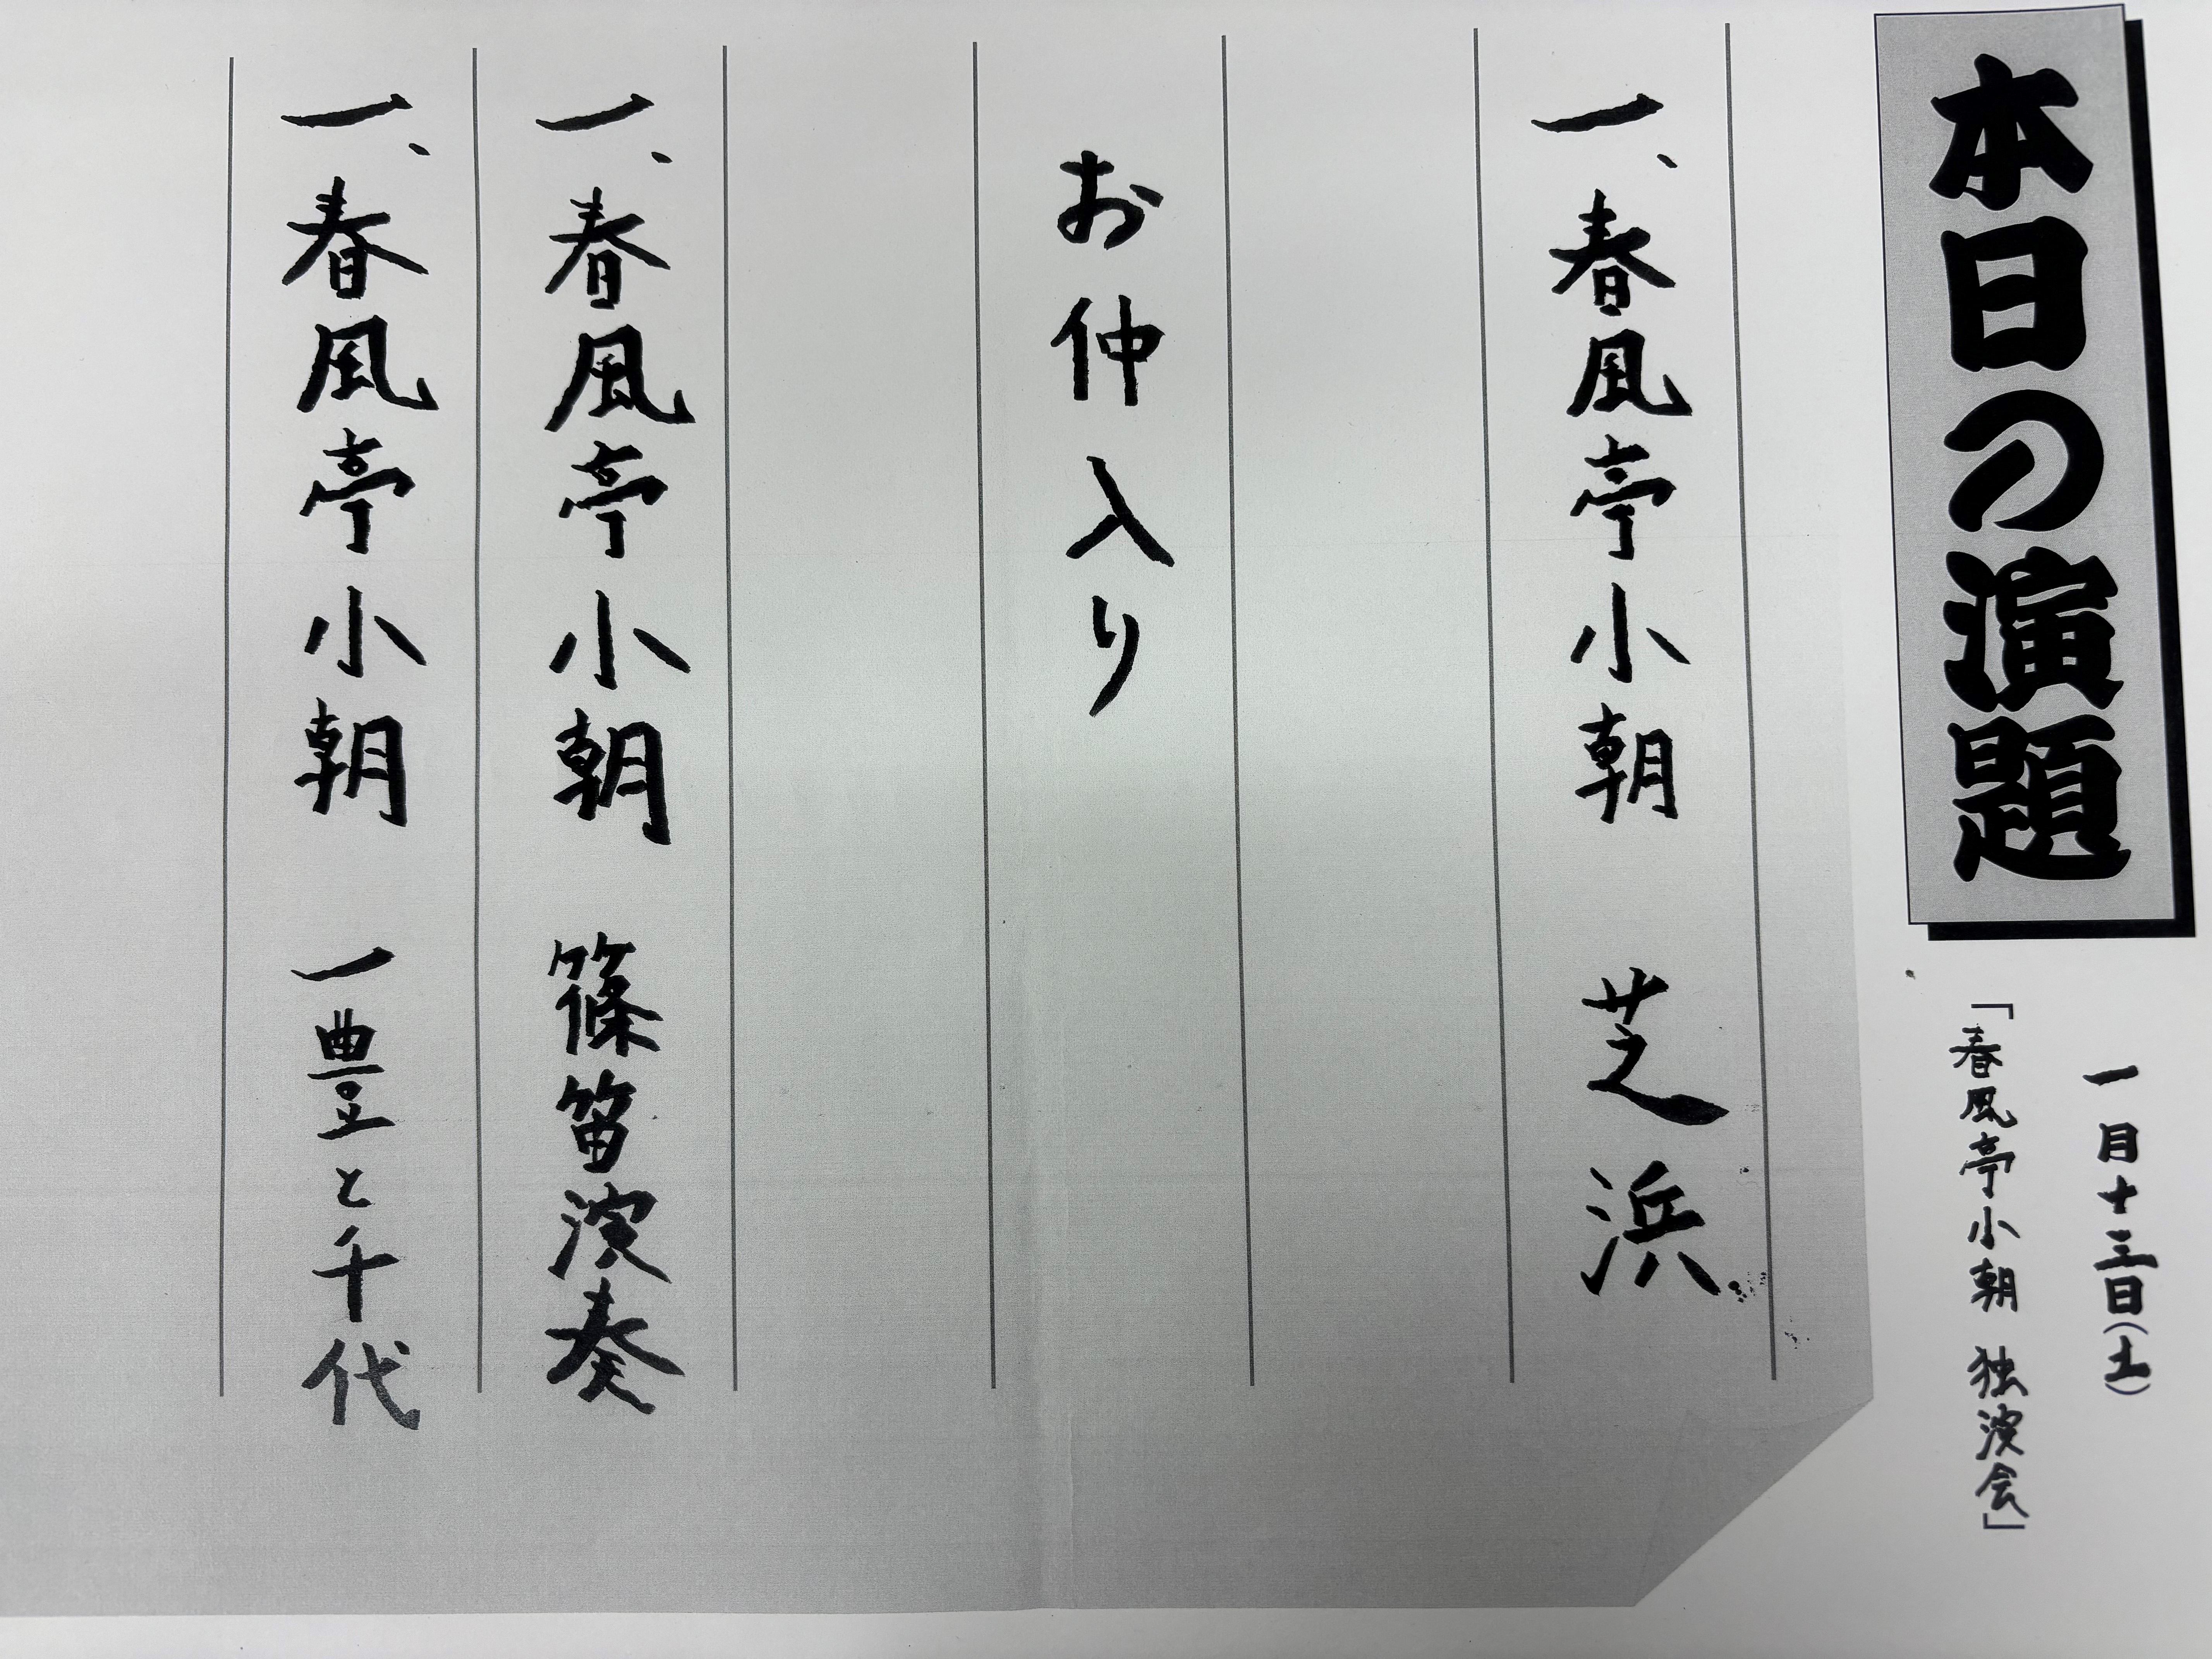 本日の演題
一月十三日(土)
「春風亭小朝 独演会」
一、春風亭小朝 芝浜
お仲入り
一、春風亭小朝 篠笛演奏
一、春風亭小朝 一豊と千代